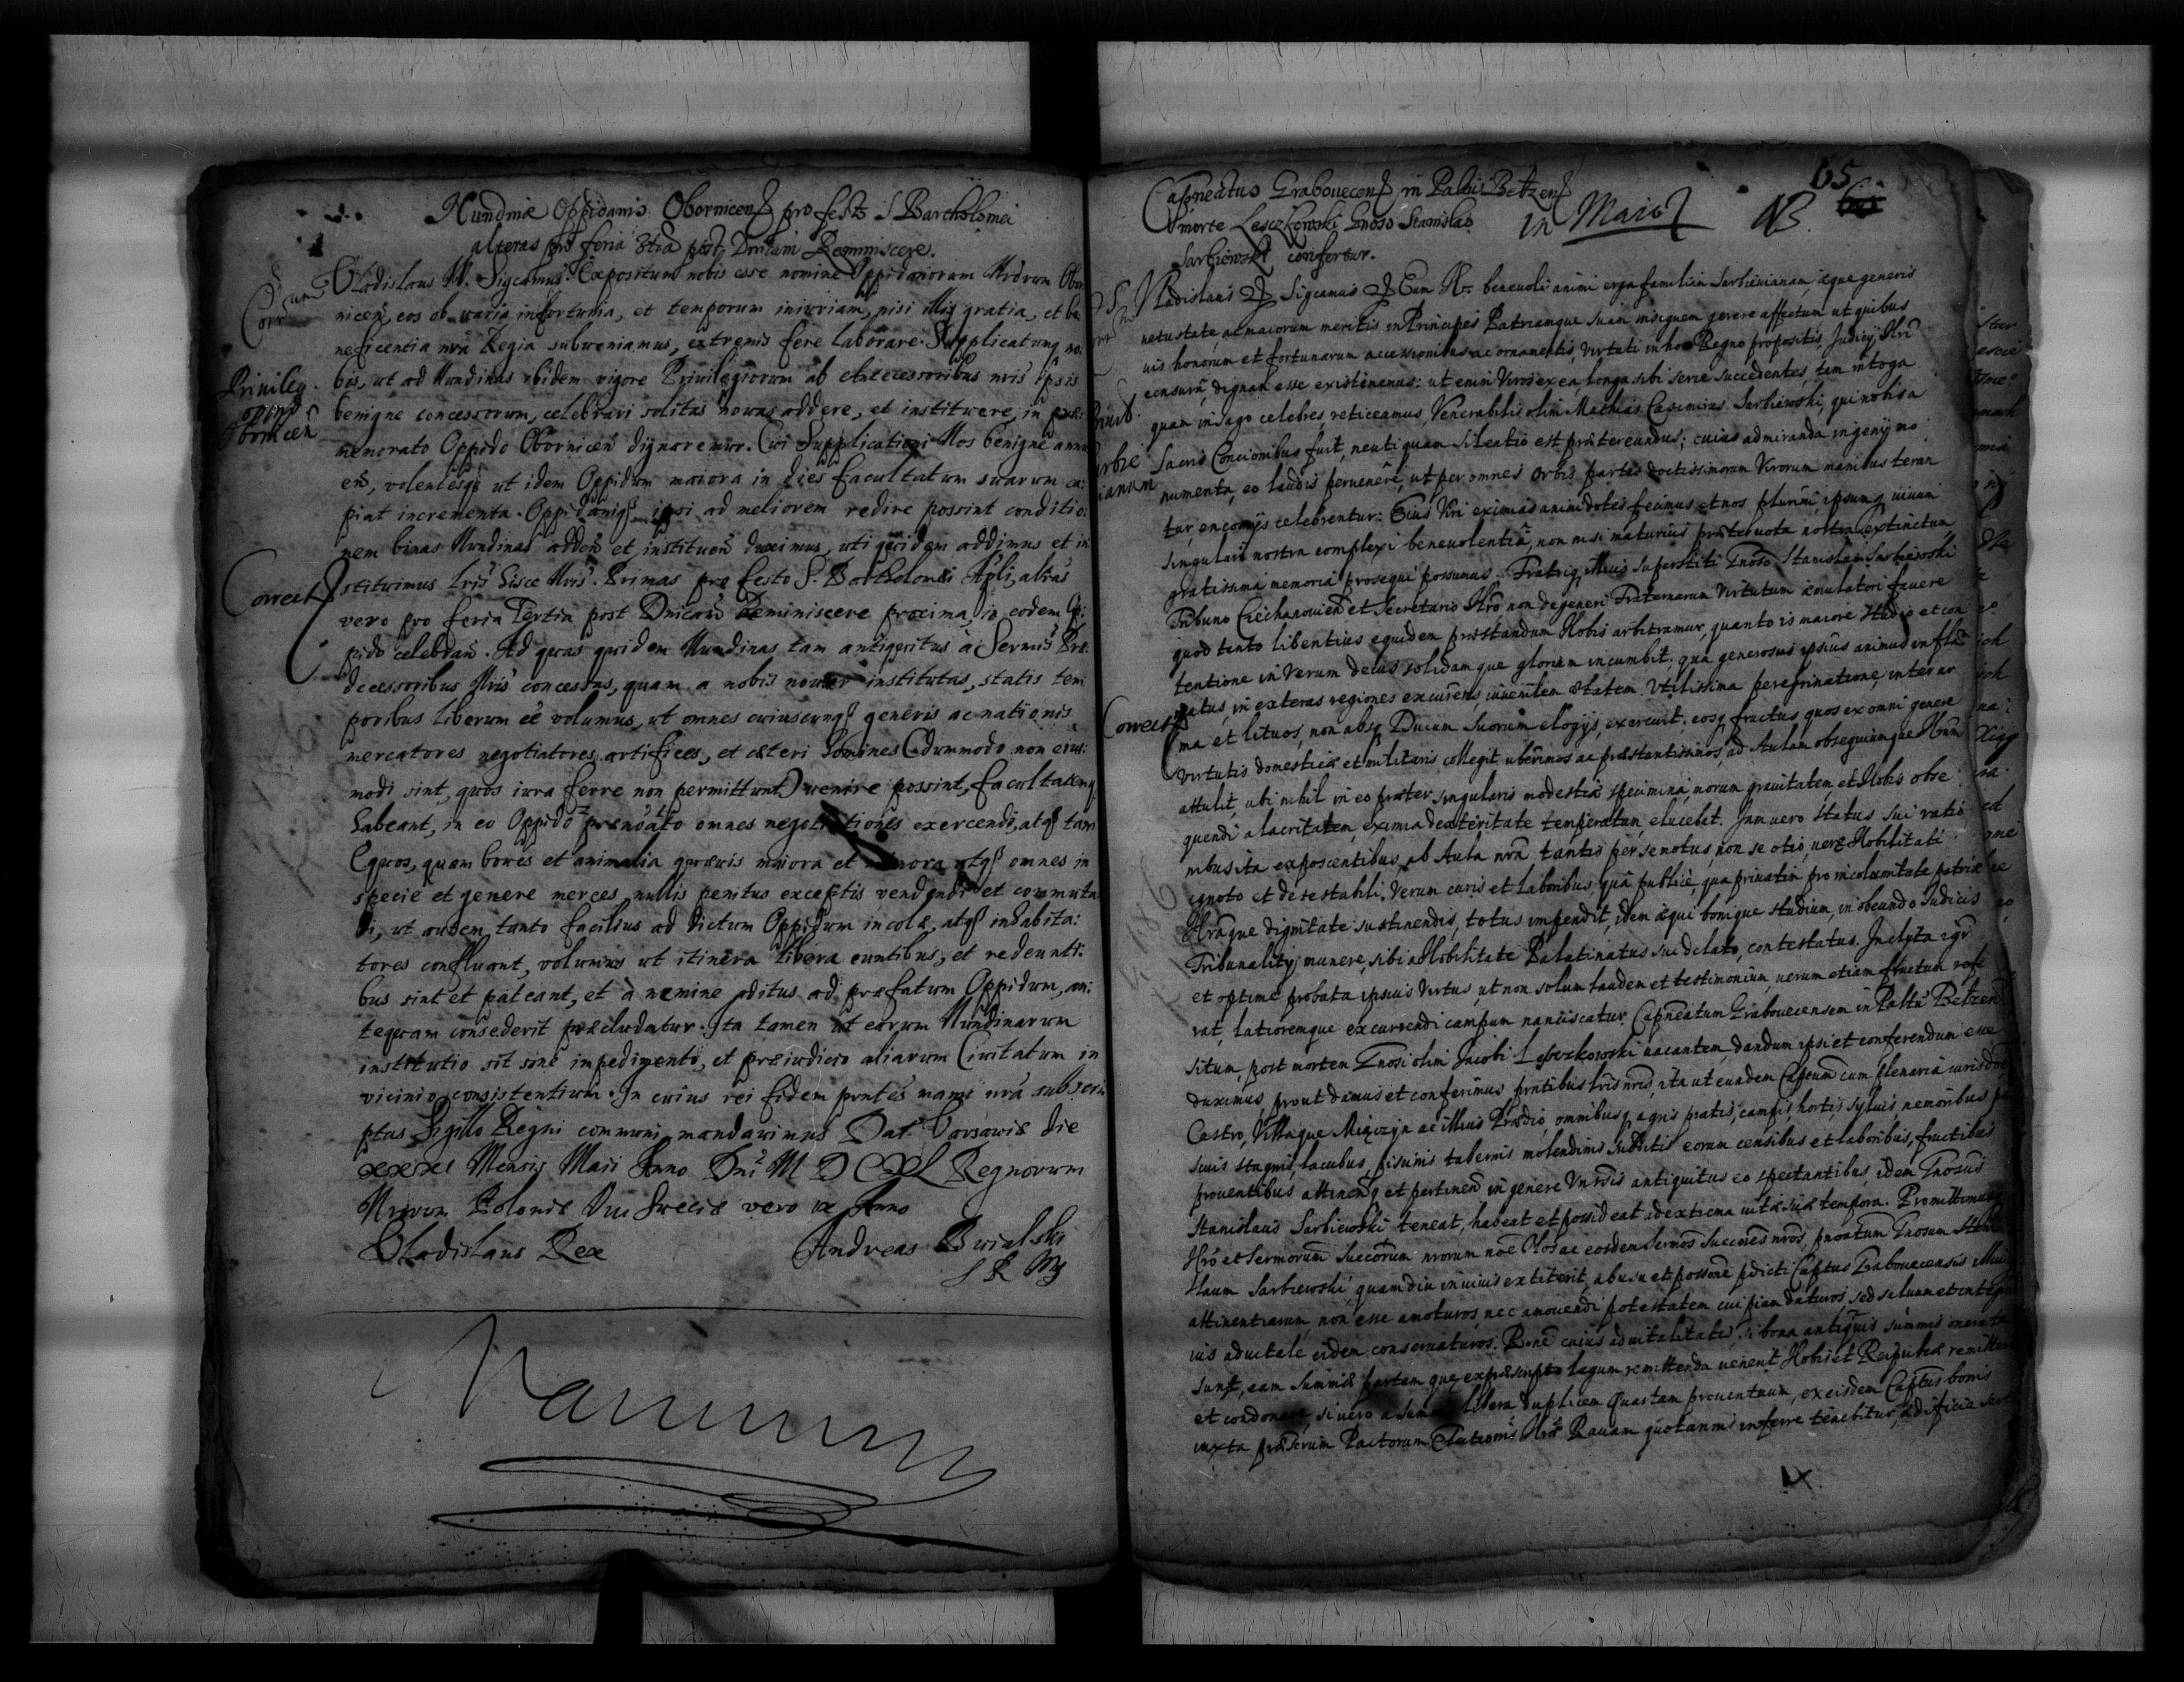 Nundinæ Oppidanis Obornicens pro festo S Bartholomei
alteras pro feria 3tia post Dnicam Reminiscere.
Vladislaus IV. Sigcamus. Expositum nobis esse nomine Oppidanorum Nrorum Obor
nicen, eos ob varia infortunia, et temporum iniuriam, nisi illis gratia, et be
neficentia nra Regia subveniamus, extremis fere laborare. Supplicatumq no:
bis, ut ad Nundinas ibidem vigore Privilegiorum ab Antecessoribus nris ipsis
benigne concessorum, celebrari solitas novas addere, et instituere, in
memorato Oppido Obornicen dignaremur. Cui Supplicationi Nos benigne annu
en, volentesq ut idem Oppidum maiora in dies facultatum suarum ca:
piat incrementa. Oppidaniq ipsi ad meliorem redire possint conditio:
nem binas Nundinas adden et instituen duximus, uti quidem addimus et in
stituimus lris hisce Nris. Primas pro festo S. Bartholomei Apli, altras
vero pro feria Tertia post Dnicam Reminiscere proxima, in eodem Op:
pido celebran. Ad quas quidem Nundinas tam antiquitus a Sermis Præ:
decessoribus Nris concessas, quam a nobis noviter institutas, statis tem
poribus liberum ee volumus, ut omnes cuiuscunq generis ac nationis
mercatores negotiatores artifices, et cæteri homines (dummodo non eius:
modi sint, quos iura ferre non permittunt) venire possint, facultatemq
habeant, in eo Oppido prænoato omnes negotiationes exercendi, atq tam
Equos, quam boves et animalia quævis maiora et minora atq omnes in
specie et genere merces nullis penitus exceptis vendendi et commuta
di, ut autem tanto facilius ad dictum Oppidum incolæ, atq inhabita:
tores confluant, volumus ut itinera libera euntibus, et redeunti:
bus sint et pateant, et à nemine aditus ad præfatum Oppidum, an:
tequam consederit præcludatur. Ita tamen ut earum Nundinarum
institutio sit sine impedimento, et præiudicio aliarum Civitatum in
vicinio consistentium. In cuius rei fidem pntes manu nra subscri
ptas Sigillo Regni communi mandavimus Dat. Varsaviæ die
Mensis Maii Anno Dni MDCXL Regnorum
Nrorum Poloniæ VIII Sveciæ vero IX Anno
Vladislaus Rex
Andreas
S R M
Corr
Privileg.
oppid
Obornicen
Correct
65
Capneatus Grabovecens in Paltu Betzens
morte Leszkowski Gnoso Stanislao
Sarbiewski confertur.
in Maio NB
Vladislaus Sigcamus Eum Nr. benevoli animi erga familiam Sarbievianam, æque generis
vetustate, ac maiorum meritis in Principes Patriamque suam insignem gerere affectum ut quibus
vis honorum et fortunarum accessionibus ac ornamentis, virtuti in hoc Regno propositis, Judicij Nri
censura dignam esse existimemus: ut enim Viros ex ea, longa sibi serie succedentes, tam in toga
quam in sago celebres, reticeamus, Venerabilis olim Mathias Casimirus Sarbiewski, qui nobis a
Sacris Concionibus fuit, neutiquam silentio est prætereundus; cuius admiranda ingenij mo
numenta, eo laudis pervenere, ut per omnes orbis partes doctissimorum Virorum manibus teran
tur, encomijs celebrentur: Eius Viri eximias animi dotes fecimus et nos plurimi, ipsumq vivum
singulari nostra complexi benevolentia, non nisi maturius præter vota nostra extinctum,
gratissima memoria prosequi possumus. Fratriq illius superstiti Gnoso Stanislao Sarbiewski
Tribuno Ciechanovien et Secretario Nro non degeneri Fraternarum Virtutum æmulatori favere
quod tanto libentius equidem præstandum Nobis arbitramur, quanto is maiore studio et con
tentione in verum decus solidamque gloriam incumbit; qua generosus ipsius animus infla
matus, in exteras regiones excurrens, iuvenilem ætatem utilissima peregrinatione, inter ar
ma et lituos, non absq Ducum suorum elogijs, exercuit; eosq fructus, quos ex omni genere
virtutis domesticæ et militaris collegit uberrimos ac præstantissimos, ad Aulam obsequiumque Nrum
attulit, ubi nihil in eo præter singularis modestiæ specimina, morum gravitatem, et Nobis obse
quendi alacritatem, eximia dexteritate temperatam, elucebat. Jam vero status sui ratio
nibus ita exposcentibus, ab Aula nra tantisper semotus, non se otio, veræ Nobilitati
ignoto et detestabili, verum curis et laboribus, qua publice, qua privatim pro incolumitate patriæ
Nraque dignitate sustinendis, totus impendit, idem æqui bonique studium, in obeundo Iudicis
Tribunalitij munere, sibi a Nobilitate Palatinatus sui delato, contestatus. Inclyta igr
et optime probata ipsius Virtus, ut non solum laudem et testimonium, verum etiam fructum refe
rat, latioremque excurrendi campum nanciscatur. Capneatum Grabovecensem in Paltu Betzen
situm, post mortem Gnosi olim Jacobi Leszkowski vacantem, dandum ipsi et conferendum esse
duximus, prout damus et conferimus pntibus lris nris, ita ut eundem Captum cum plenaria iurisdne
Castro, Villaque ac illius Prædio, omnibusq agris pratis, campis hortis sylvis, nemoribus
scuis stagnis, lacubus, piscinis tabernis molendinis subditis eorum censibus et laboribus, fructibus
proventibus attinen q et pertinen in genere Vnrsis antiquitus eo spectantibus, idem Gnosus
Stanislaus Sarbiewski teneat, habeat et possideat ad extrema vitæ suæ tempora. Promittimus
Nro et Sermorum Succorum nrorum noe Nos ac eosdem Sermos Succores nros, pnoatum Gnosum Stani
slaum Sarbiewski, quamdiu in vivis extiterit, ab usu et possone pdicti Captus Grabovecensis illius
attinentiarum non esse amoturos nec amovendi potestatem cuipiam daturos, sed salvum et integrum
ius advitale eidem conservaturos. Rone cuius advitalitatis, si bona antiquis summis onerata
sunt, eam summæ partem quæ ex præscripto legum remittenda venerit Nobis et Reipublcæ remittere
et condonare, si vero a libera duplicem Quartam proventuum, ex eisdem Captus bonis
iuxta præscrum Pactorum Nræ Ravam quotannis inferre tenebitur, ædificia sarta
Correct